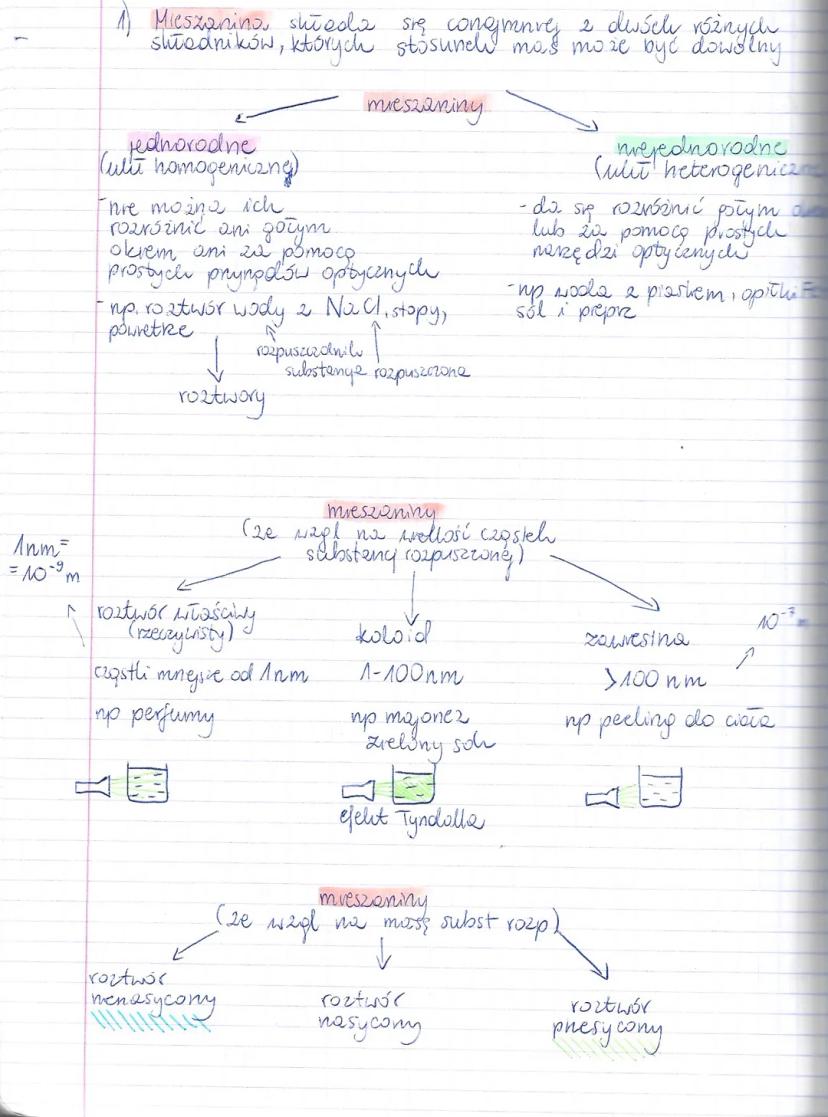 1) Mieszanina składa się conajmniej z dwóch różnych
składników, których stosunek mas może być dowolny
mieszaniny
jednorodne
(ukł homogeniczne)
- nie można ich
rozróżnić ani gołym
okiem ani za pomocą
prostych przyrządów optycznych
- np. roztwór wody z NaCl, stopy,
powietrze
rozpuszczalnik
substancja rozpuszczona
roztwory
niejednorodne
(ukł heterogeniczne
- da się rozróżnić gołym
lub za pomocą prostych
narzędzi optycznych
- np woda z piaskiem, opiłki Fe
sól i pieprz
mieszaniny
(ze wzgl na wielkość cząstek
substancji rozpuszczonej)
1nm=
=10⁻⁹m
roztwór właściwy
(rzeczywisty)
cząstki mniejsze od 1nm
np perfumy
koloid
1-100nm
np majonez
zielony sok
efekt Tyndalla
zawiesina
>100nm
10⁻⁷m
np peeling do ciała
mieszaniny
(ze wzgl na masę subst rozp)
roztwór
nienasycony
roztwór
nasycony
roztwór
przesycony